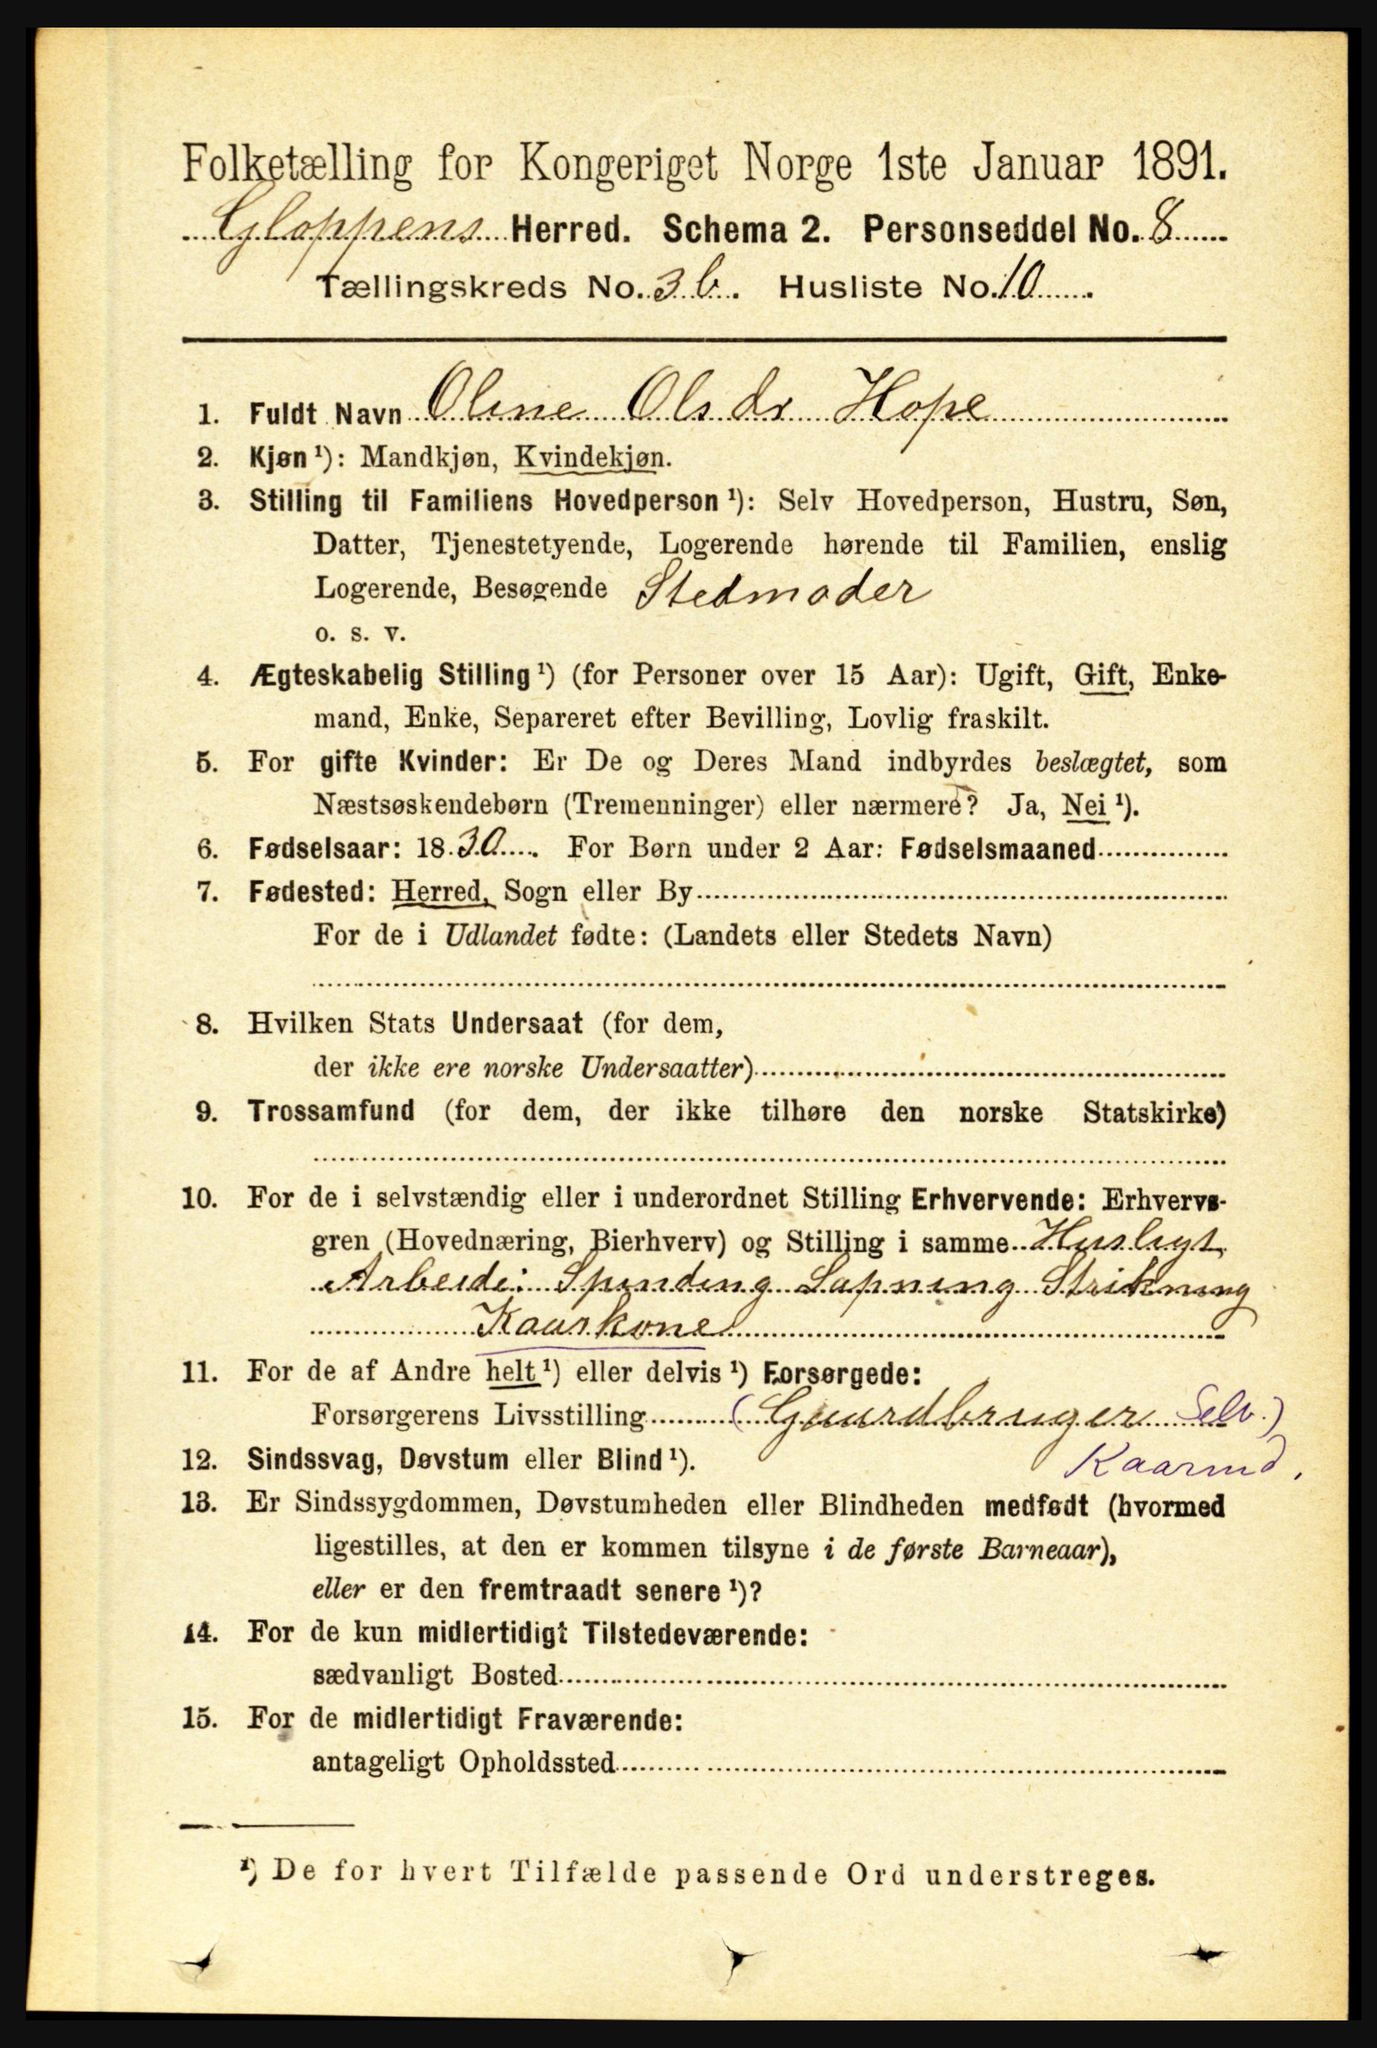 Folketælling for Kongeriget Norge 1ste Januar 1891.
Gloppens Herred. Schema 2. Personseddel No. 8
Tællingskreds No. 3 b. Husliste No. 10
1. Fuldt Navn Oline Olsdr Hope
2. Kjøn ¹): Mandkjøn, Kvindekjøn.
3. Stilling til Familiens Hovedperson ¹): Selv Hovedperson, Hustru, Søn,
Datter, Tjenestetyende, Logerende hørende til Familien, enslig
Logerende, Besøgende Stedmoder
o. s. v.
4. Ægteskabelig Stilling ¹) (for Personer over 15 Aar): Ugift, Gift, Enke-
mand, Enke, Separeret efter Bevilling, Lovlig fraskilt.
5. For gifte Kvinder: Er De og Deres Mand indbyrdes beslægtet, som
Næstsøskendebørn (Tremenninger) eller nærmere? Ja, Nei ¹).
6. Fødselsaar: 1830. For Børn under 2 Aar: Fødselsmaaned
7. Fødested: Herred, Sogn eller By
For de i Udlandet fødte: (Landets eller Stedets Navn)
8. Hvilken Stats Undersaat (for dem,
der ikke ere norske Undersaatter)
9. Trossamfund (for dem, der ikke tilhøre den norske Statskirke)
10. For de i selvstændig eller i underordnet Stilling Erhvervende: Erhvervs-
gren (Hovednæring, Bierhverv) og Stilling i samme Husligt
Arbeide: Spinding Lapning Strikning
Kaarkone
11. For de af Andre helt ¹) eller delvis ¹) Forsørgede:
Forsørgerens Livsstilling (Gaardbruger Selv.)
12. Sindssvag, Døvstum eller Blind ¹). Kaarmd.
13. Er Sindssygdommen, Døvstumheden eller Blindheden medfødt (hvormed
ligestilles, at den er kommen tilsyne i de første Barneaar),
eller er den fremtraadt senere ¹)?
14. For de kun midlertidigt Tilstedeværende:
sædvanligt Bosted
15. For de midlertidigt Fraværende:
antageligt Opholdssted
¹) De for hvert Tilfælde passende Ord understreges.